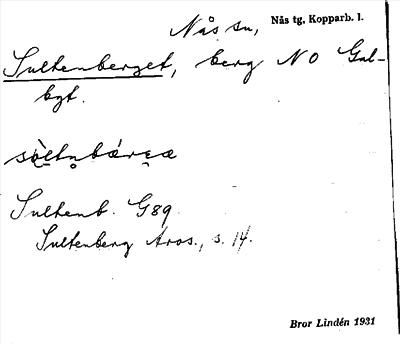 Nås sn, Nås tg, Kopparb. l.
Sultenberget, berg NO Gal-
bgt.
Sultenb. G89
Sultenberg Aros., s. 14.
Bror Lindén 1931